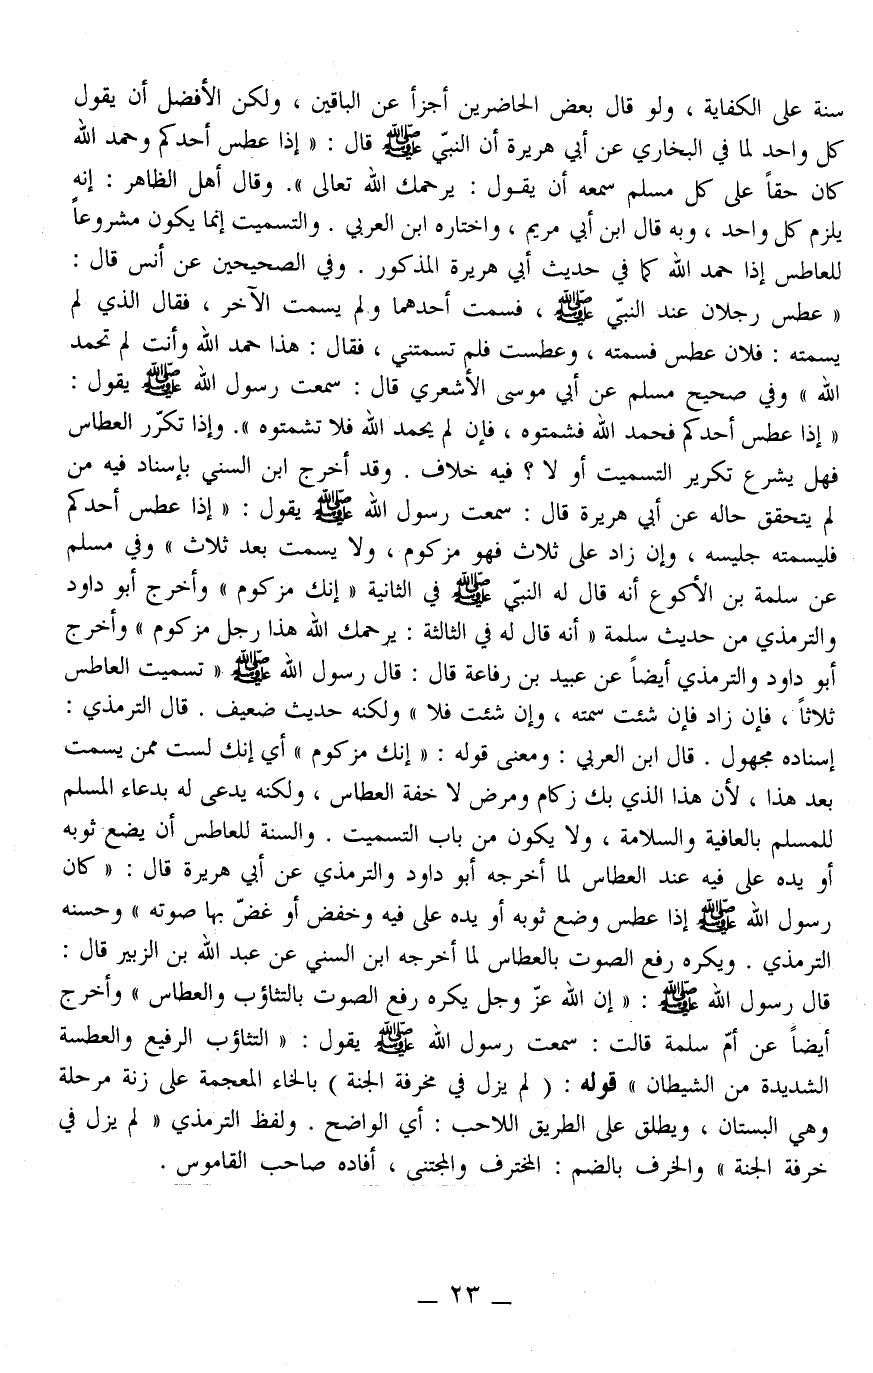 سنة على الكفاية ، ولو قال بعض الحاضرين أجزأ عن الباقين ، ولكن الأفضل أن يقول
كل واحد لما في البخاري عن أبي هريرة أن النبيّ ﷺ قال : « إذا عطس أحدكم وحمد الله
كان حقاً على كل مسلم سمعه أن يقول : يرحمك الله تعالى ». وقال أهل الظاهر : إنه
يلزم كل واحد ، وبه قال ابن أبي مريم ، واختاره ابن العربي . والتسميت إنما يكون مشروعاً
للعاطس إذا حمد الله كما في حديث أبي هريرة المذكور . وفي الصحيحين عن أنس قال :
« عطس رجلان عند النبيّ ﷺ ، فسمت أحدهما ولم يسمت الآخر ، فقال الذي لم
يسمته : فلان عطس فسمته ، وعطست فلم تسمتني ، فقال : هذا حمد الله وأنت لم تحمد
الله » وفي صحيح مسلم عن أبي موسى الأشعري قال : سمعت رسول الله ﷺ يقول :
« إذا عطس أحدكم فحمد الله فشمتوه ، فإن لم يحمد الله فلا تشمتوه ». وإذا تكرّر العطاس
فهل يشرع تكرير التسميت أو لا ؟ فيه خلاف . وقد أخرج ابن السني بإسناد فيه من
لم يتحقق حاله عن أبي هريرة قال : سمعت رسول الله ﷺ يقول : « إذا عطس أحدكم
فليسمته جليسه ، وإن زاد على ثلاث فهو مزكوم ، ولا يسمت بعد ثلاث » وفي مسلم
عن سلمة بن الأكوع أنه قال له النبيّ ﷺ في الثانية « إنك مزكوم » وأخرج أبو داود
والترمذي من حديث سلمة « أنه قال له في الثالثة : يرحمك الله هذا رجل مزكوم » وأخرج
أبو داود والترمذي أيضاً عن عبيد بن رفاعة قال : قال رسول الله ﷺ « تسميت العاطس
ثلاثاً ، فإن زاد فإن شئت سمته ، وإن شئت فلا » ولكنه حديث ضعيف . قال الترمذي :
إسناده مجهول . قال ابن العربي : ومعنى قوله : « إنك مزكوم » أي إنك لست ممن يسمت
بعد هذا ، لأن هذا الذي بك زكام ومرض لا خفة العطاس ، ولكنه يدعى له بدعاء المسلم
للمسلم بالعافية والسلامة ، ولا يكون من باب التسميت . والسنة للعاطس أن يضع ثوبه
أو يده على فيه عند العطاس لما أخرجه أبو داود والترمذي عن أبي هريرة قال : « كان
رسول الله ﷺ إذا عطس وضع ثوبه أو يده على فيه وخفض أو غضّ بها صوته » وحسنه
الترمذي . ويكره رفع الصوت بالعطاس لما أخرجه ابن السني عن عبد الله بن الزبير قال :
قال رسول الله ﷺ : « إن الله عزّ وجل يكره رفع الصوت بالتثاؤب والعطاس » وأخرج
أيضاً عن أمّ سلمة قالت : سمعت رسول الله ﷺ يقول : « التثاؤب الرفيع والعطسة
الشديدة من الشيطان » قوله : ( لم يزل في مخرفة الجنة ) بالخاء المعجمة على زنة مرحلة
وهي البستان ، ويطلق على الطريق اللاحب : أي الواضح . ولفظ الترمذي « لم يزل في
خرفة الجنة » والخرف بالضم : المخترف والمجتنى ، أفاده صاحب القاموس .
— ٢٣ —